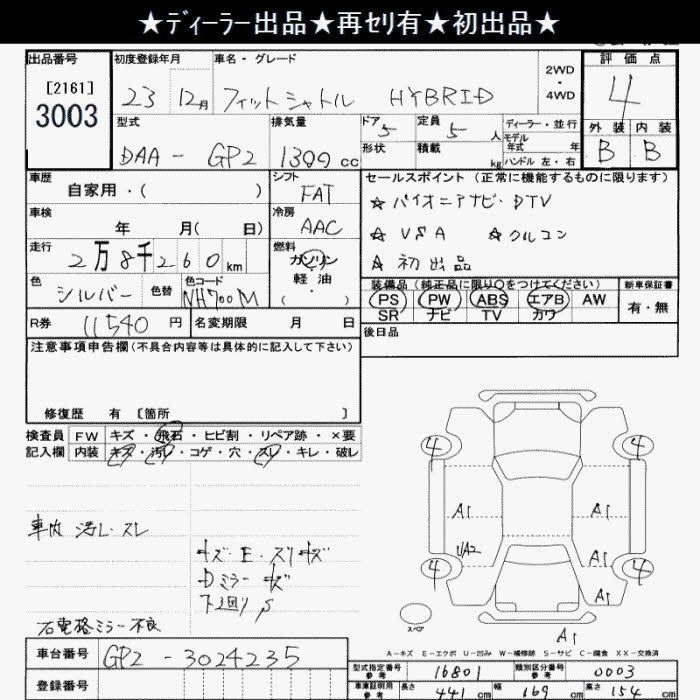 ★ディーラー出品★再セリ有★初出品★
出品番号
[2161]
3003
初度登録年月
23 12月
車名・グレード
フィットシャトル HYBRID
2WD
・
4WD
評価点
4
型式
DAA - GP2
排気量
1300 cc
ドア
5
定員
5 人
形状
積載
kg
ディーラー・並行
モデル
年式 年
ハンドル 左・右
外装 内装
B B
車歴
自家用・( )
車検
年 月( 日)
走行
2万8千260 km
色
シルバー
色替
色コード
NH700M
シフト
FAT
冷房
AAC
燃料
ガソリン
軽油
( )
セールスポイント (正常に機能するものに限ります)
☆ パイオニアナビ・DTV
☆ VSA ☆ クルコン
☆ 初出品
装備品 (純正品に限り○をつけてください)
PS PW ABS エアB AW
SR ナビ TV カワ
新車保証書
有・無
R券 11540 円
名変期限 月 日
後日品
注意事項申告欄 (不具合内容等は具体的に記入して下さい)
修復歴 有 〔箇所 〕
検査員
記入欄
FW キズ・飛石・ヒビ割・リペア跡・×要
内装 キズ・汚レ・コゲ・穴・スレ・キレ・破レ
車内 汚レ・スレ
キズ・E・スリキズ
Dミラー キズ
下廻り S
右電格ミラー不良
4 4
A1 A1
UA2 A1
4 4
A1
A1
スペア
A-キズ E-エクボ U-凹み W-補修跡 S-サビ C-腐食 XX-交換済
車台番号 GP2 - 3024235
登録番号
型式指定番号
参考
16801
類別区分番号
参考
0003
車庫証明用
参考
長さ 441 cm 幅 169 cm 高さ 154 cm